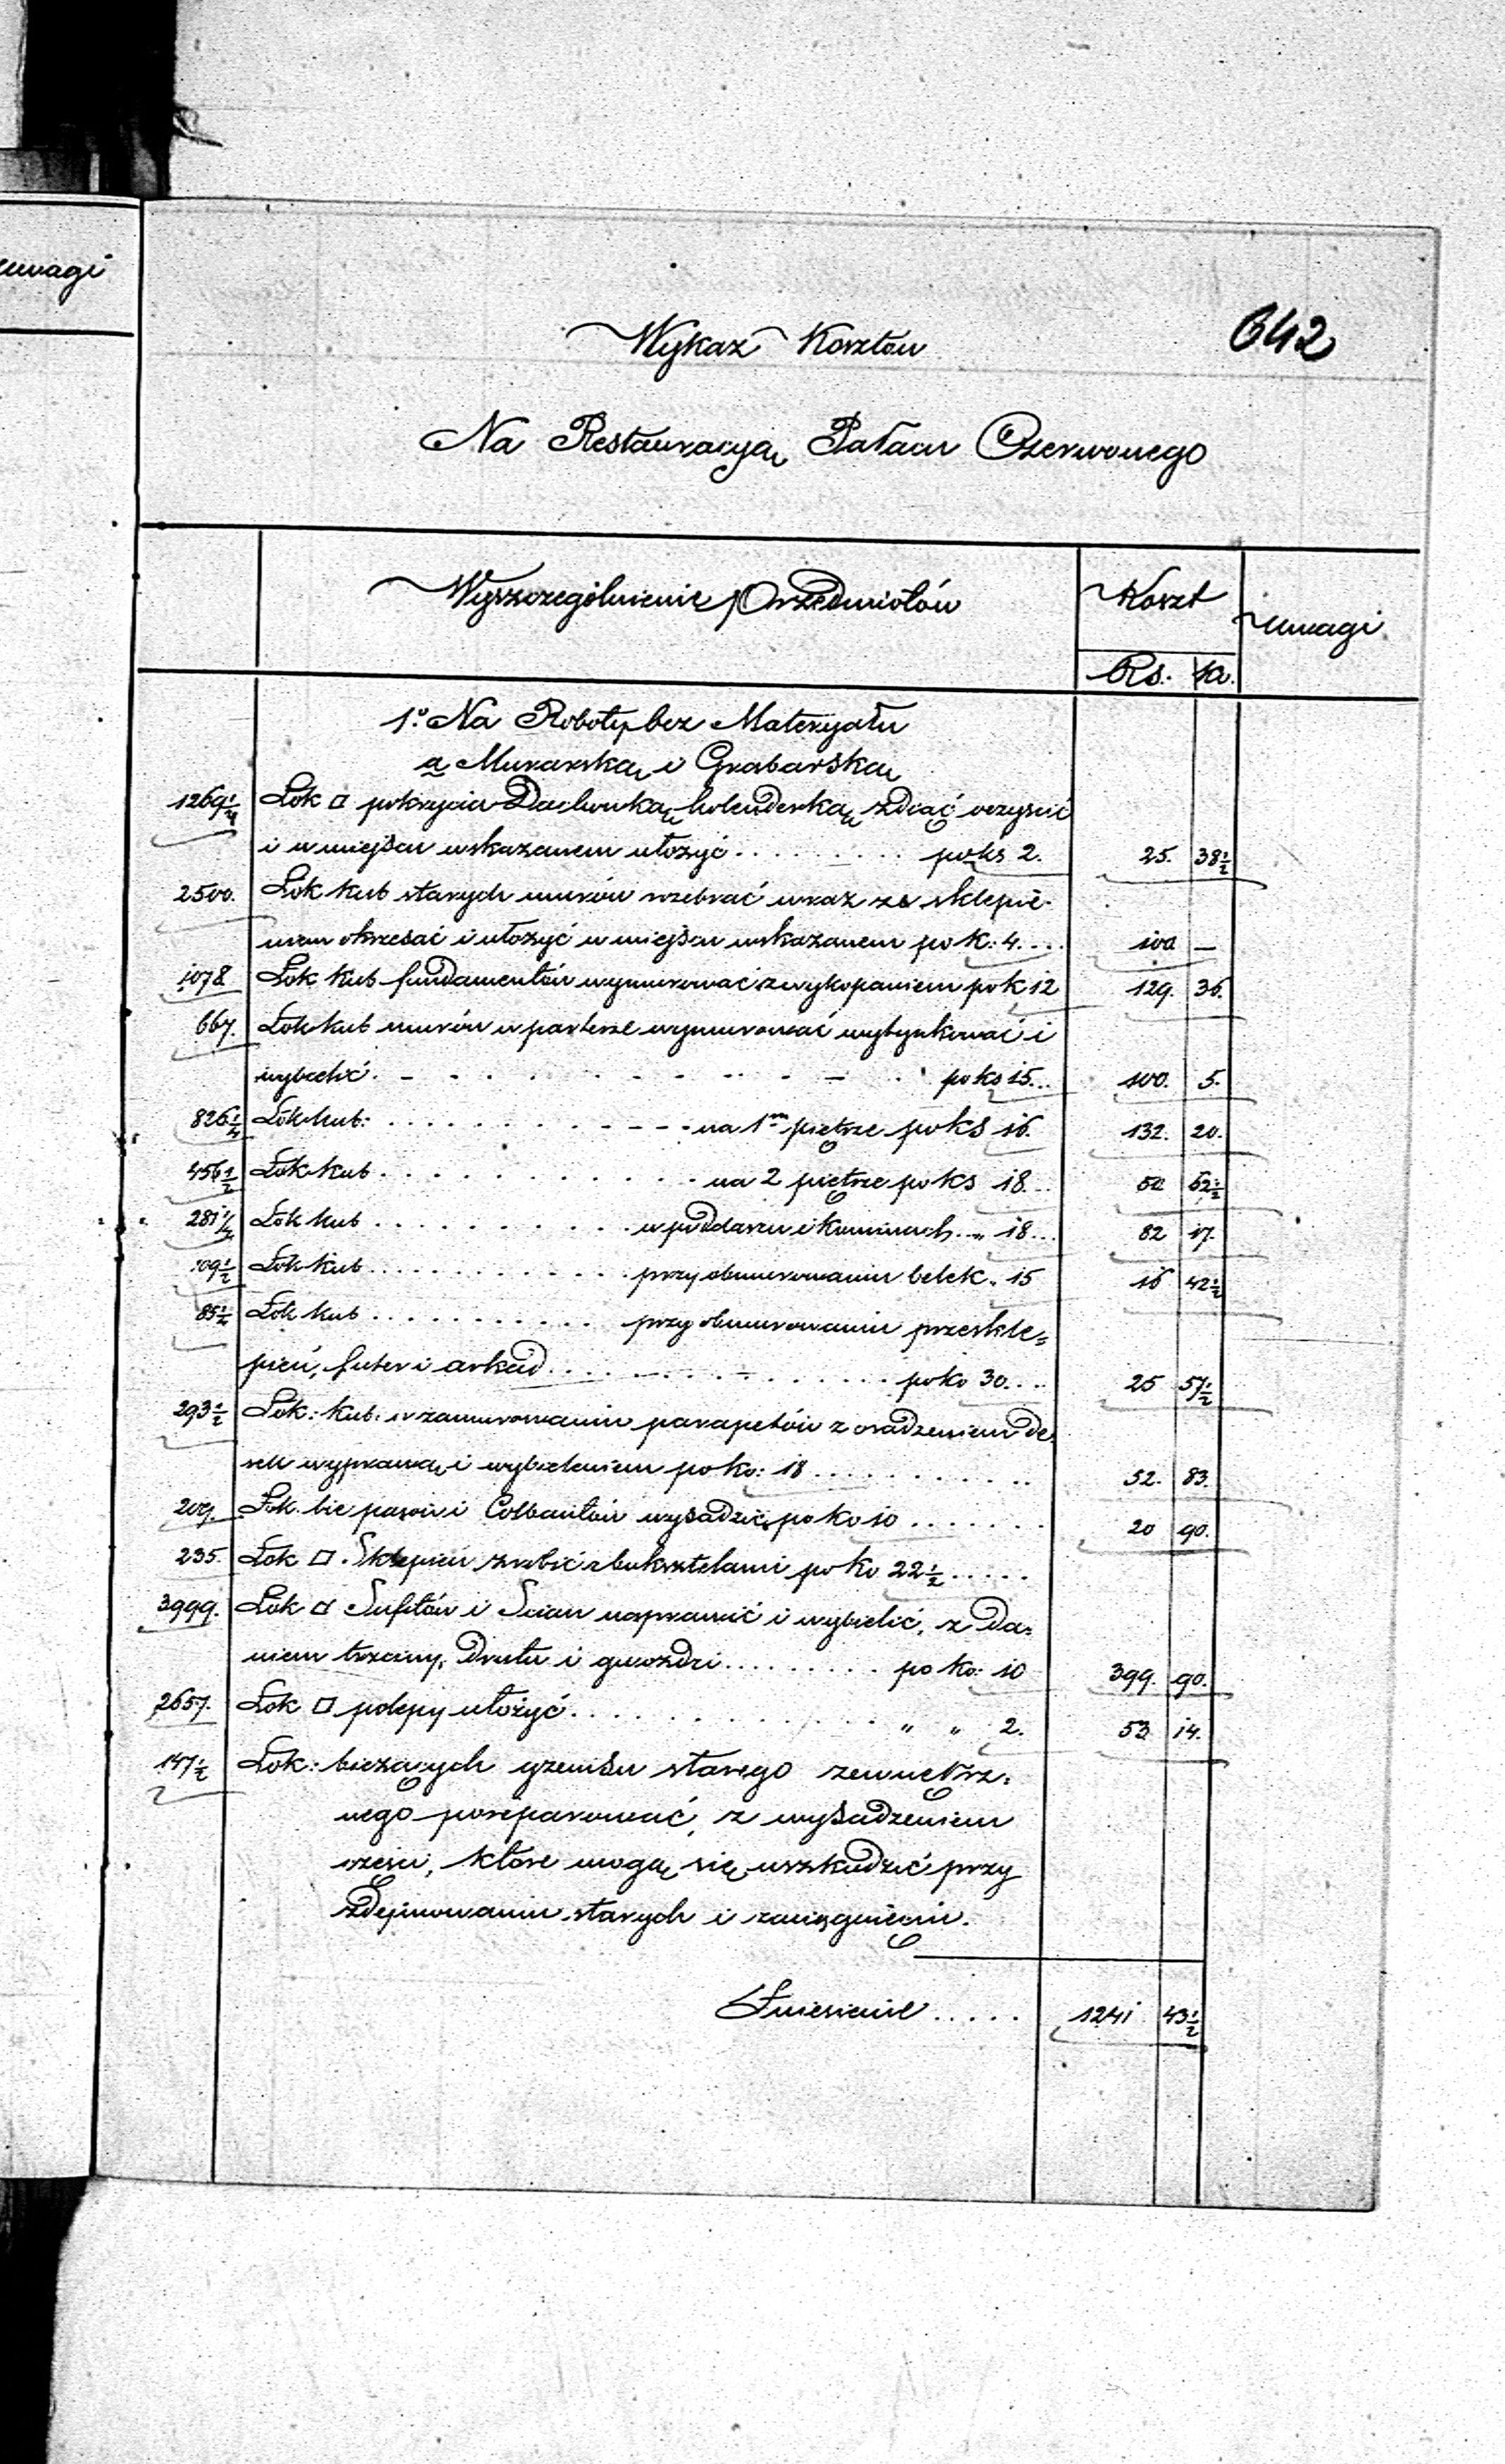 uwagi
642
Wykaz Kosztów
Na Restauracyą Pałacu Czerwonego
Wyszczególnienie Przedmiotów Koszt Uwagi
Rs. Ko.
1º Na Roboty bez Materyału
a Murarską i Grabarską
1269 1/4 Łok □ pokrycia Dachówką holenderką zdiąć oczyścić
i w miejscu wskazanem ułożyć . . . . . . . . . po ks 2. 25. 38 1/2
2500. Łok kub starych murów rozebrać wraz ze sklepie-
niem okrzesać i ułożyć w miejscu wskazanem po k: 4. . . . 100 —
1078 Łok kub fundamentów wymurować z wykopaniem po k 12 129. 36.
667. Łok kub murów w parterze wymurować wytynkować i
wybielić. . . . . . . . . . . . po ks 15. . . 100. 5.
826 1/4 Łok kub: . . . . . . . . . . . . na 1m piętrze po ks 16. 132. 20.
456 1/2 Łok kub . . . . . . . . . . . . na 2 piętrze po ks 18. . . 62 1/2
281 1/4 Łok kub . . . . . . . . . . w poddaszu i kominach . . „ 18 . . . 82 17.
109 1/2 Łok kub . . . . . . . . . . . przy obmurowaniu belek „ 15 16 42 1/2
85 1/4 Łok kub . . . . . . . . . . . przy obmurowaniu przeskle=
pień, futer i arkad . . . . . . . . . . . . . po ko 30. . . . 25 57 1/2
293 1/2 Łok: kub: w zamurowaniu parapetów z osadzeniem de=
sek wyprawą i wybieleniem po ko: 18 . . . . . . . . . . . 52. 83.
209. Łok. bie pasów i wysadzić po ko 10 . . . . . . . 20 90.
235. Łok □. Sklepień zrobić z buksztelami po ko 22 1/2 . . . . .
3999. Łok □ Sufitów i Scian naprawić i wybielić, z da=
niem trzciny, Drutu i gwozdzi . . . . . . . . . po ko: 10 399. 90.
2657. Łok □ polepy ułożyć . . . . . . . . . . . . „ „ 2. 53 14.
147 1/2 Łok: bieżących gzemsu starego zewnętrz=
nego poreparować, z wysadzeniem
części, które mogą się uszkodzić przy
zdejmowaniu starych i zaciągnięciu.
Zniesienie . . . . . 1241 43 1/2